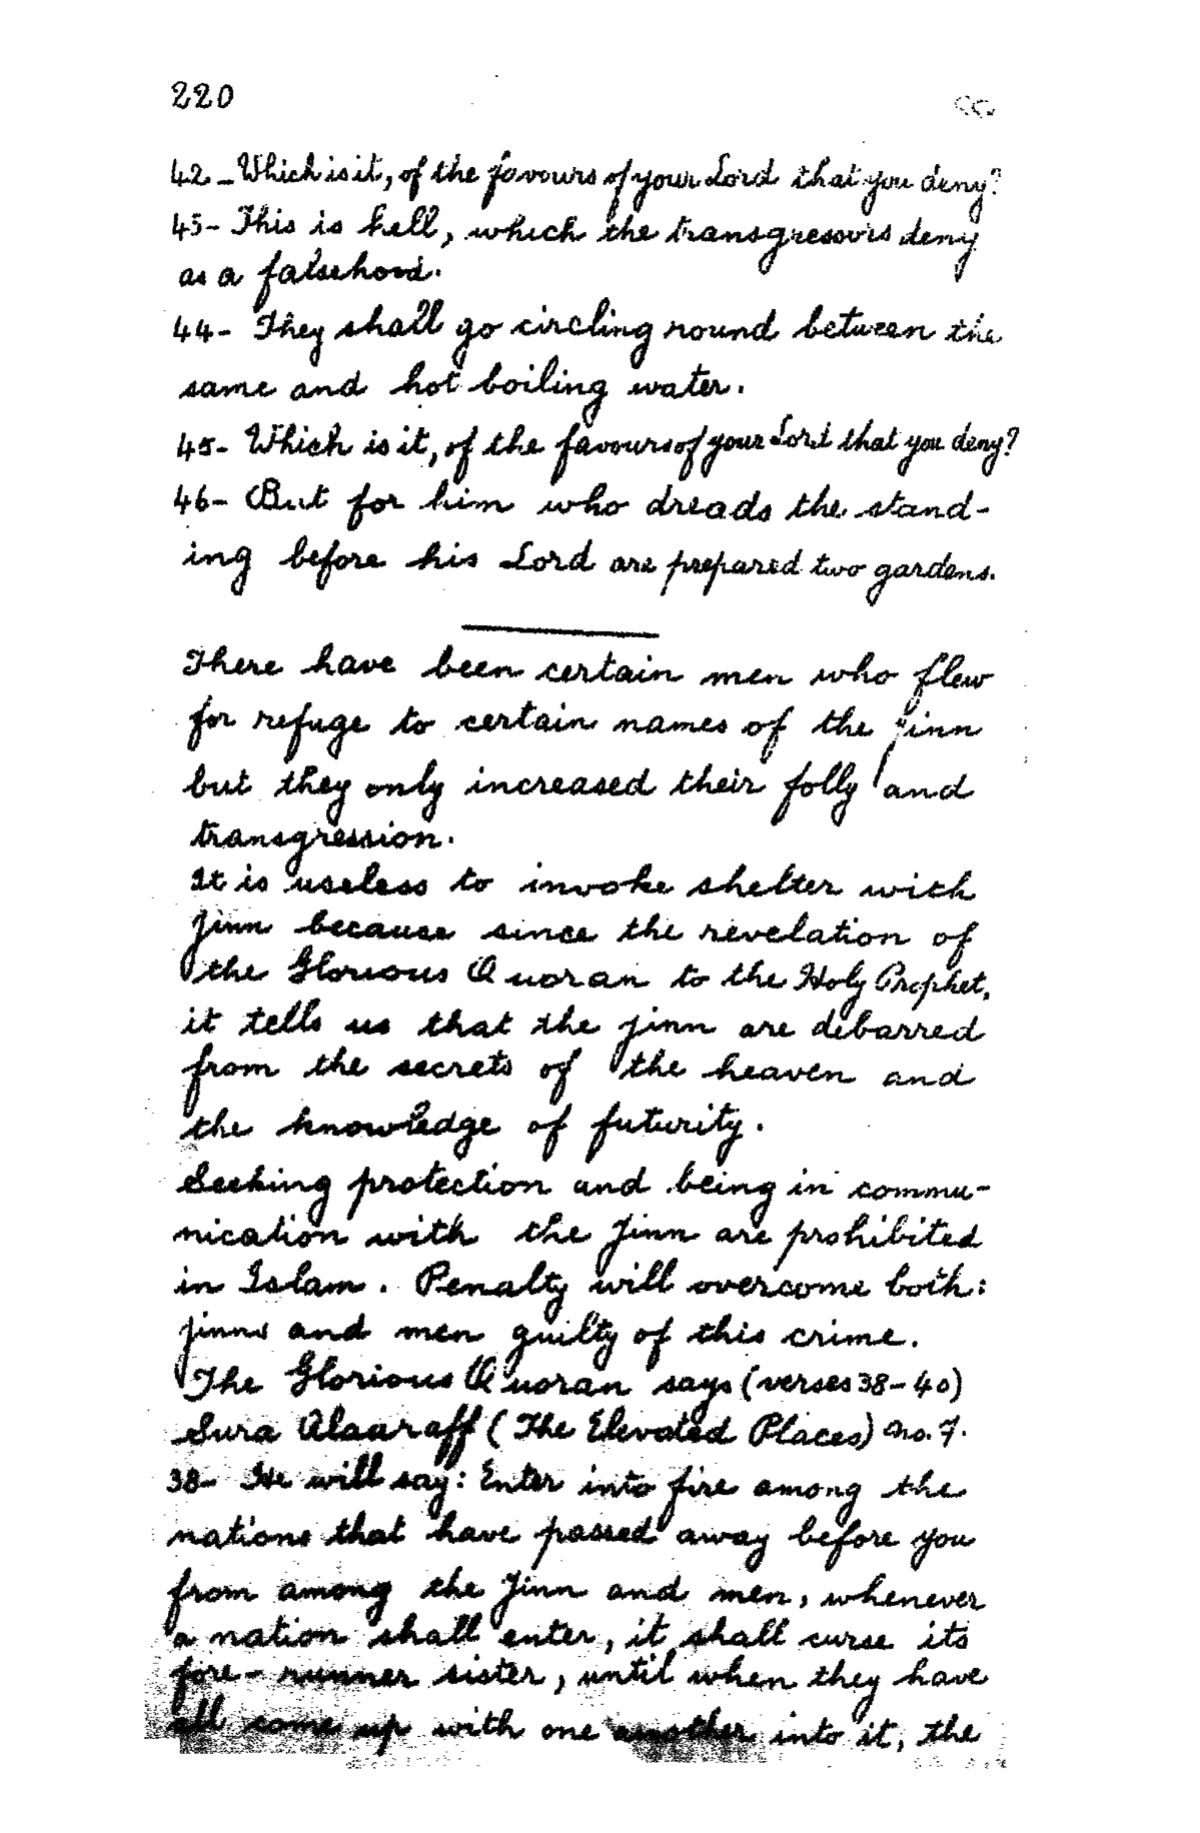 220
42-Which is it, of the favours of your Lord that you deny?
45- This is hell, which the transgressors deny
as a falsehood.
44- They shall go circling round between the
same and hot boiling water.
45- Which is it, of the favours of your Lord that you deny?
46- But for him who dreads the stand-
ing before his Lord are prepared two gardens.
There have been certain men who flew
for refuge to certain names of the jinn
but they only increased their folly and
transgression.
It is useless to invoke shelter with
Jinn because since the revelation of
the Glorious Quoran to the Holy Prophet,
it tells us that the jinn are debarred
from the secrets of the heaven and
the knowledge of futurity.
Seeking protection and being in commu-
nication with the Jinn are prohibited
in Islam. Penalty will overcome both:
jinns and men guilty of this crime.
The Glorious Quoran says (verses 38-40)
Sura Alaaraff (The Elevated Places) no. 7.
38- He will say: Enter into fire among the
nations that have passed away before you
from among the Jinn and men, whenever
a nation shall enter, it shall curse its
fore-runner sister, until when they have
all come up with one another into it, the